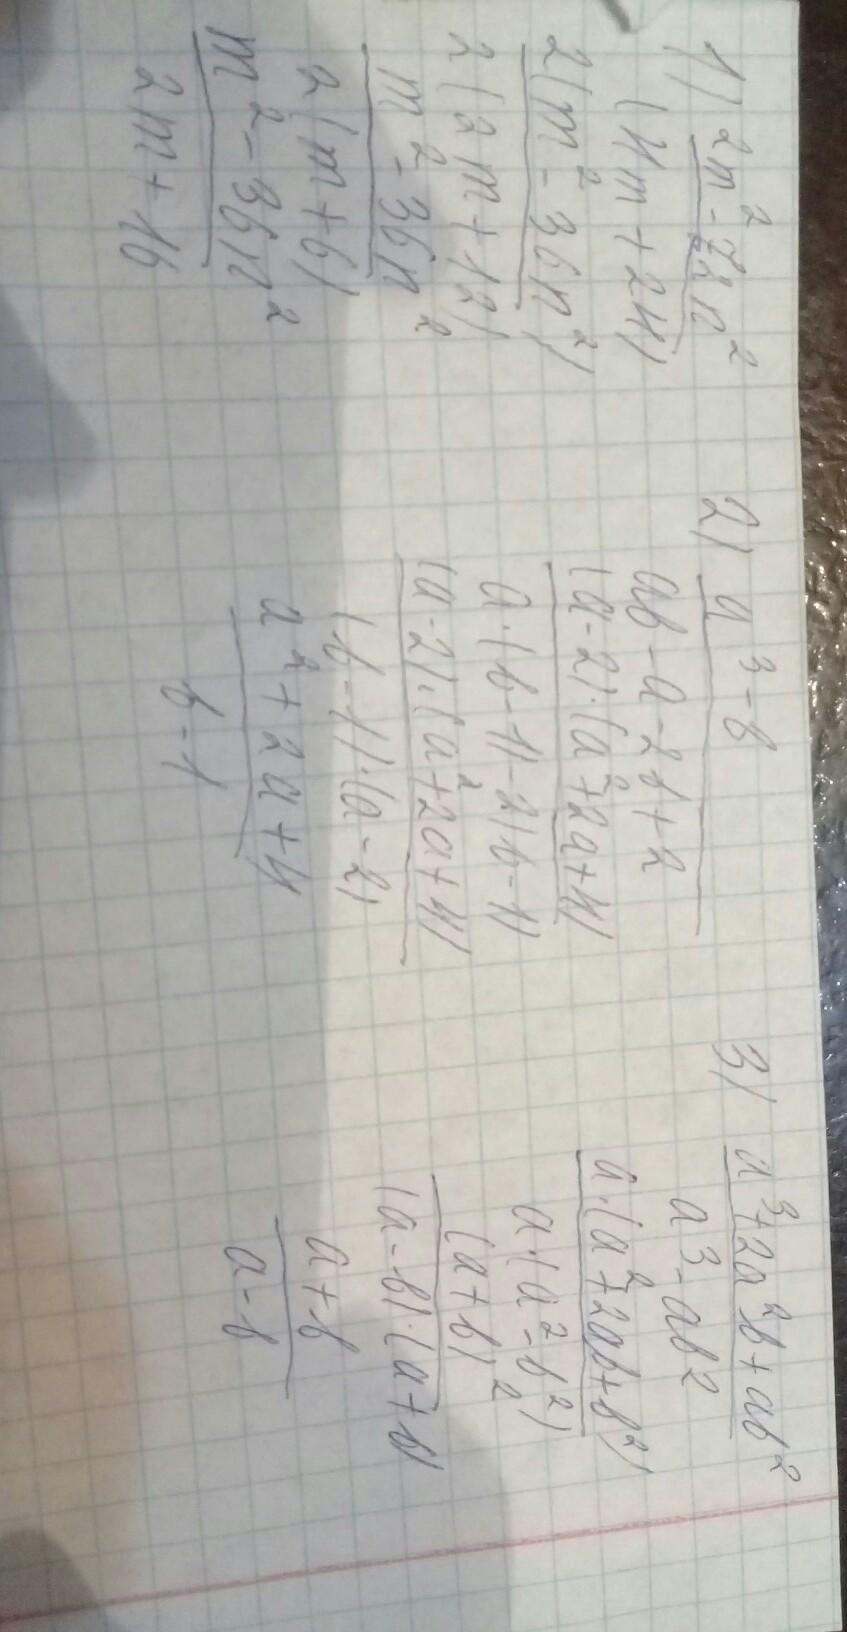 1) 2m² - 72n²
(4m + 24)
2(m² - 36n²)
2(2m + 12)
m² - 36n²
2(m + 6)
m² - 36n²
2m + 16
2) a³ - 8
ab - a - 2b + 2
(a - 2)·(a² + 2a + 4)
a·(b - 1) - 2(b - 1)
(a - 2)·(a² + 2a + 4)
(b - 1)·(a - 2)
a² + 2a + 4
b - 1
3) a³ + 2a²b + ab²
a³ - ab²
a·(a² + 2ab + b²)
a·(a² - b²)
(a + b)²
(a - b)·(a + b)
a + b
a - b